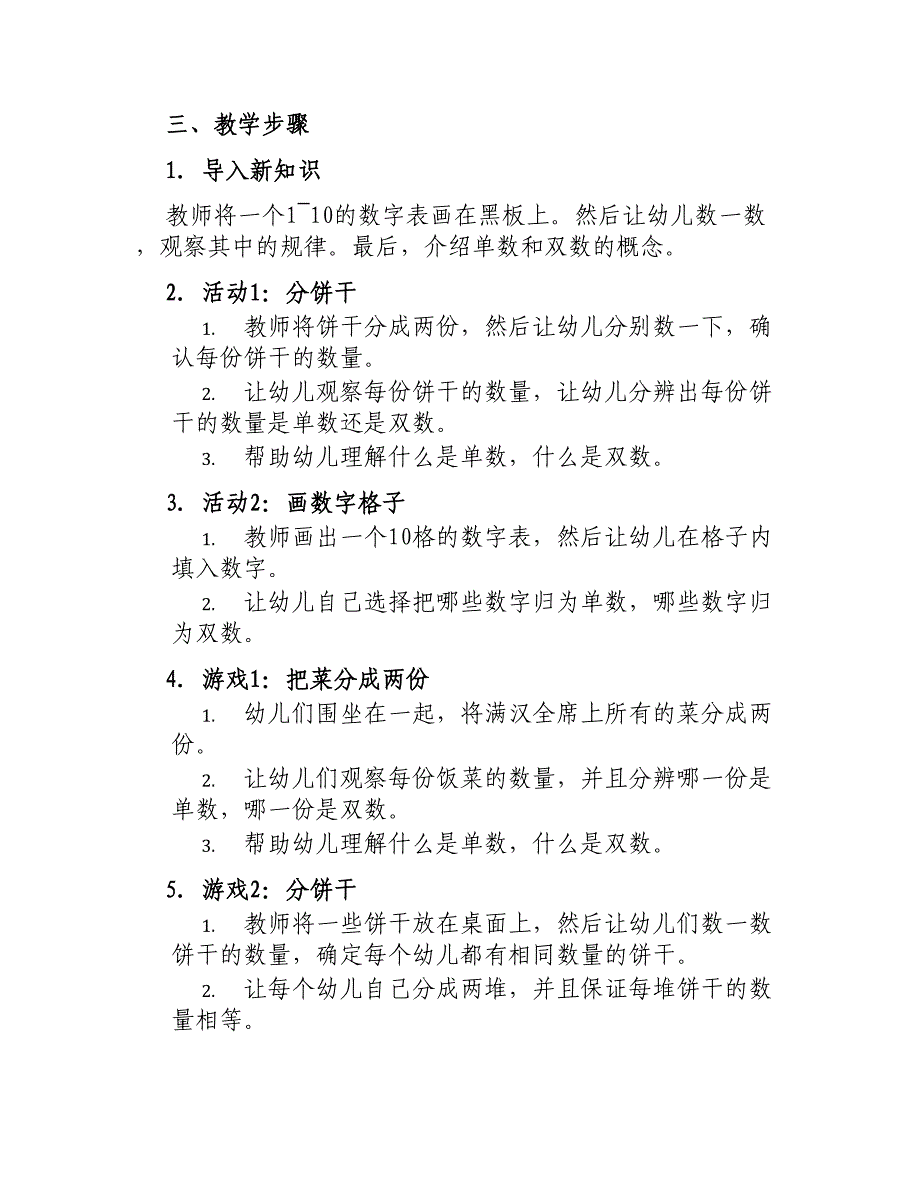 三、教学步骤
1. 导入新知识
教师将一个1~10的数字表画在黑板上。然后让幼儿数一数
，观察其中的规律。最后，介绍单数和双数的概念。
2. 活动1：分饼干
1. 教师将饼干分成两份，然后让幼儿分别数一下，确
认每份饼干的数量。
2. 让幼儿观察每份饼干的数量，让幼儿分辨出每份饼
干的数量是单数还是双数。
3. 帮助幼儿理解什么是单数，什么是双数。
3. 活动2：画数字格子
1. 教师画出一个10格的数字表，然后让幼儿在格子内
填入数字。
2. 让幼儿自己选择把哪些数字归为单数，哪些数字归
为双数。
4. 游戏1：把菜分成两份
1. 幼儿们围坐在一起，将满汉全席上所有的菜分成两
份。
2. 让幼儿们观察每份饭菜的数量，并且分辨哪一份是
单数，哪一份是双数。
3. 帮助幼儿理解什么是单数，什么是双数。
5. 游戏2：分饼干
1. 教师将一些饼干放在桌面上，然后让幼儿们数一数
饼干的数量，确定每个幼儿都有相同数量的饼干。
2. 让每个幼儿自己分成两堆，并且保证每堆饼干的数
量相等。